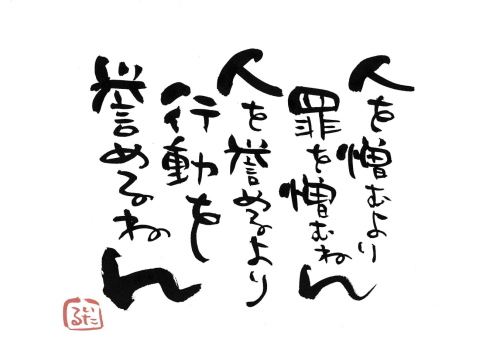 人を憎むより
罪を憎むねん
人を誉めるより
行動を
誉めるねん